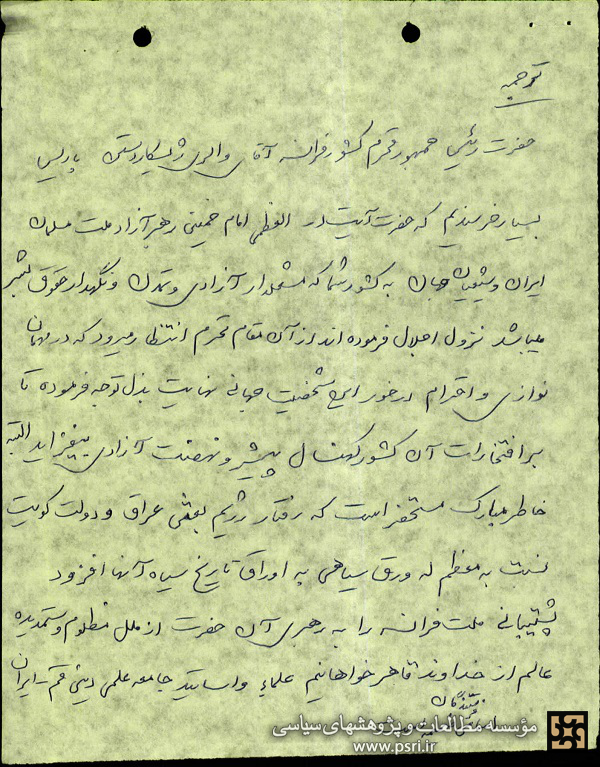 ترجمه
حضرت رئیس جمهور محترم کشور فرانسه آقای والری ژیسکاردستن پاریس
بسیار خرسندیم که حضرت آیت‌الله العظمی امام خمینی رهبر آزاد ملت مسلمان
ایران و شیعیان جهان به کشور شما که مشعلدار آزادی و تمدن و نگهدار حقوق بشر
میباشد نزول اجلال فرموده‌اند از آن مقام محترم انتظار میرود که در مهمان
نوازی و احترام درخور این شخصیت جهانی نهایت بذل توجه فرموده تا
بر افتخارات آن کشور کهنسال پیشرو نهضت آزادی بیفزاید البته
خاطر مبارک مستحضر است که رفتار رژیم بعثی عراق و دولت کویت
نسبت به معظم له ورق سیاهی به اوراق تاریخ سیاه آنها افزود
پشتیبانی ملت فرانسه را به رهبری آن حضرت از ملل مظلوم و ستمدیده
عالم از خداوند قاهر خواهانیم علماء و اساتید جامعه علمی دینی قم - ایران
مؤسسه مطالعات و پژوهشهای سیاسی
www.psri.ir